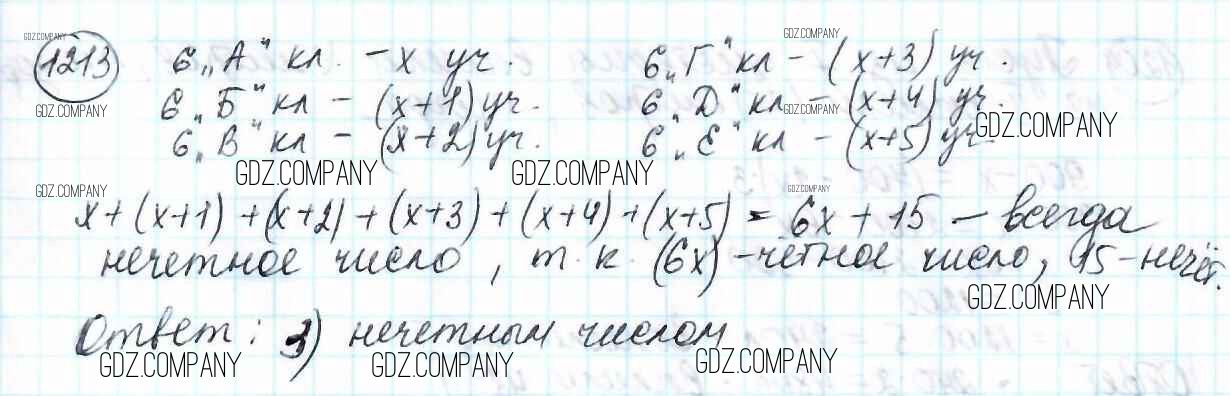 GDZ.COMPANY
GDZ.COMPANY
1213 6 „А" кл. – х уч. 6 „Г" кл – (х+3) уч.
GDZ.COMPANY GDZ.COMPANY
6 „Б" кл – (х+1) уч. 6 „Д" кл – (х+4) уч.
GDZ.COMPANY
6 „В" кл – (х+2) уч. 6 „Е" кл – (х+5) уч.
GDZ.COMPANY GDZ.COMPANY
GDZ.COMPANY GDZ.COMPANY
х+(х+1)+(х+2)+(х+3)+(х+4)+(х+5) = 6х+15 – всегда
нечетное число, т.к. (6х) – чётное число, 15 – нечёт.
GDZ.COMPANY
Ответ: 3) нечетным числом
GDZ.COMPANY GDZ.COMPANY GDZ.COMPANY